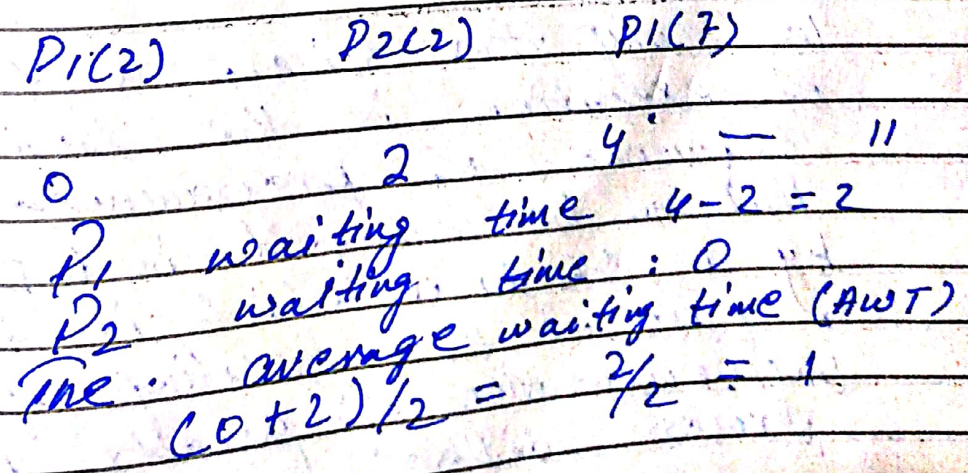 P1(2) P2(2) P1(7)
0 2 4 — 11
P1 waiting time 4-2 = 2
P2 waiting time : 0
The average waiting time (AWT)
(0+2)/2 = 2/2 = 1